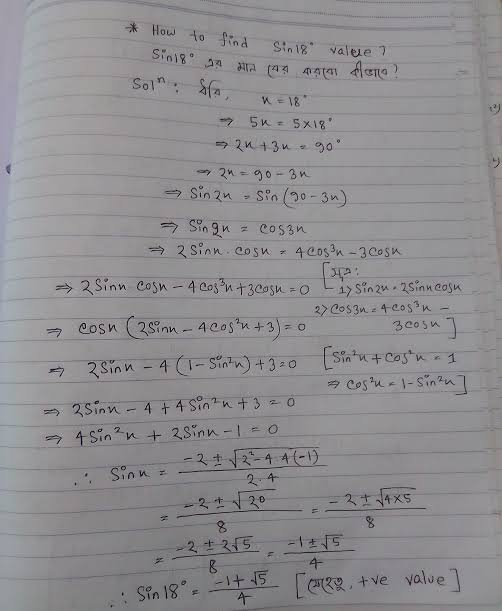 * How to find Sin18° value?
Sin18° এর মান বের করবো কীভাবে?
Solⁿ: ধরি,
x = 18°
⇒ 5x = 5×18°
⇒ 2x + 3x = 90°
⇒ 2x = 90 - 3x
⇒ Sin2x = Sin(90 - 3x)
⇒ Sin2x = cos3x
⇒ 2Sinx · cosx = 4cos³x - 3cosx
⇒ 2Sinx cosx - 4cos³x + 3cosx = 0 [সূত্র: 1) Sin2x = 2Sinx cosx
⇒ cosx (2Sinx - 4cos²x + 3) = 0 2) cos3x = 4cos³x - 3cosx]
⇒ 2Sinx - 4(1 - Sin²x) + 3 = 0 [Sin²x + cos²x = 1
⇒ 2Sinx - 4 + 4Sin²x + 3 = 0 ⇒ cos²x = 1 - Sin²x]
⇒ 4Sin²x + 2Sinx - 1 = 0
∴ Sinx = (-2 ± √(2² - 4·4(-1))) / 2·4
= (-2 ± √20) / 8 = (-2 ± √(4×5)) / 8
= (-2 ± 2√5) / 8 = (-1 ± √5) / 4
∴ Sin18° = (-1 + √5) / 4 [যেহেতু, +ve value]